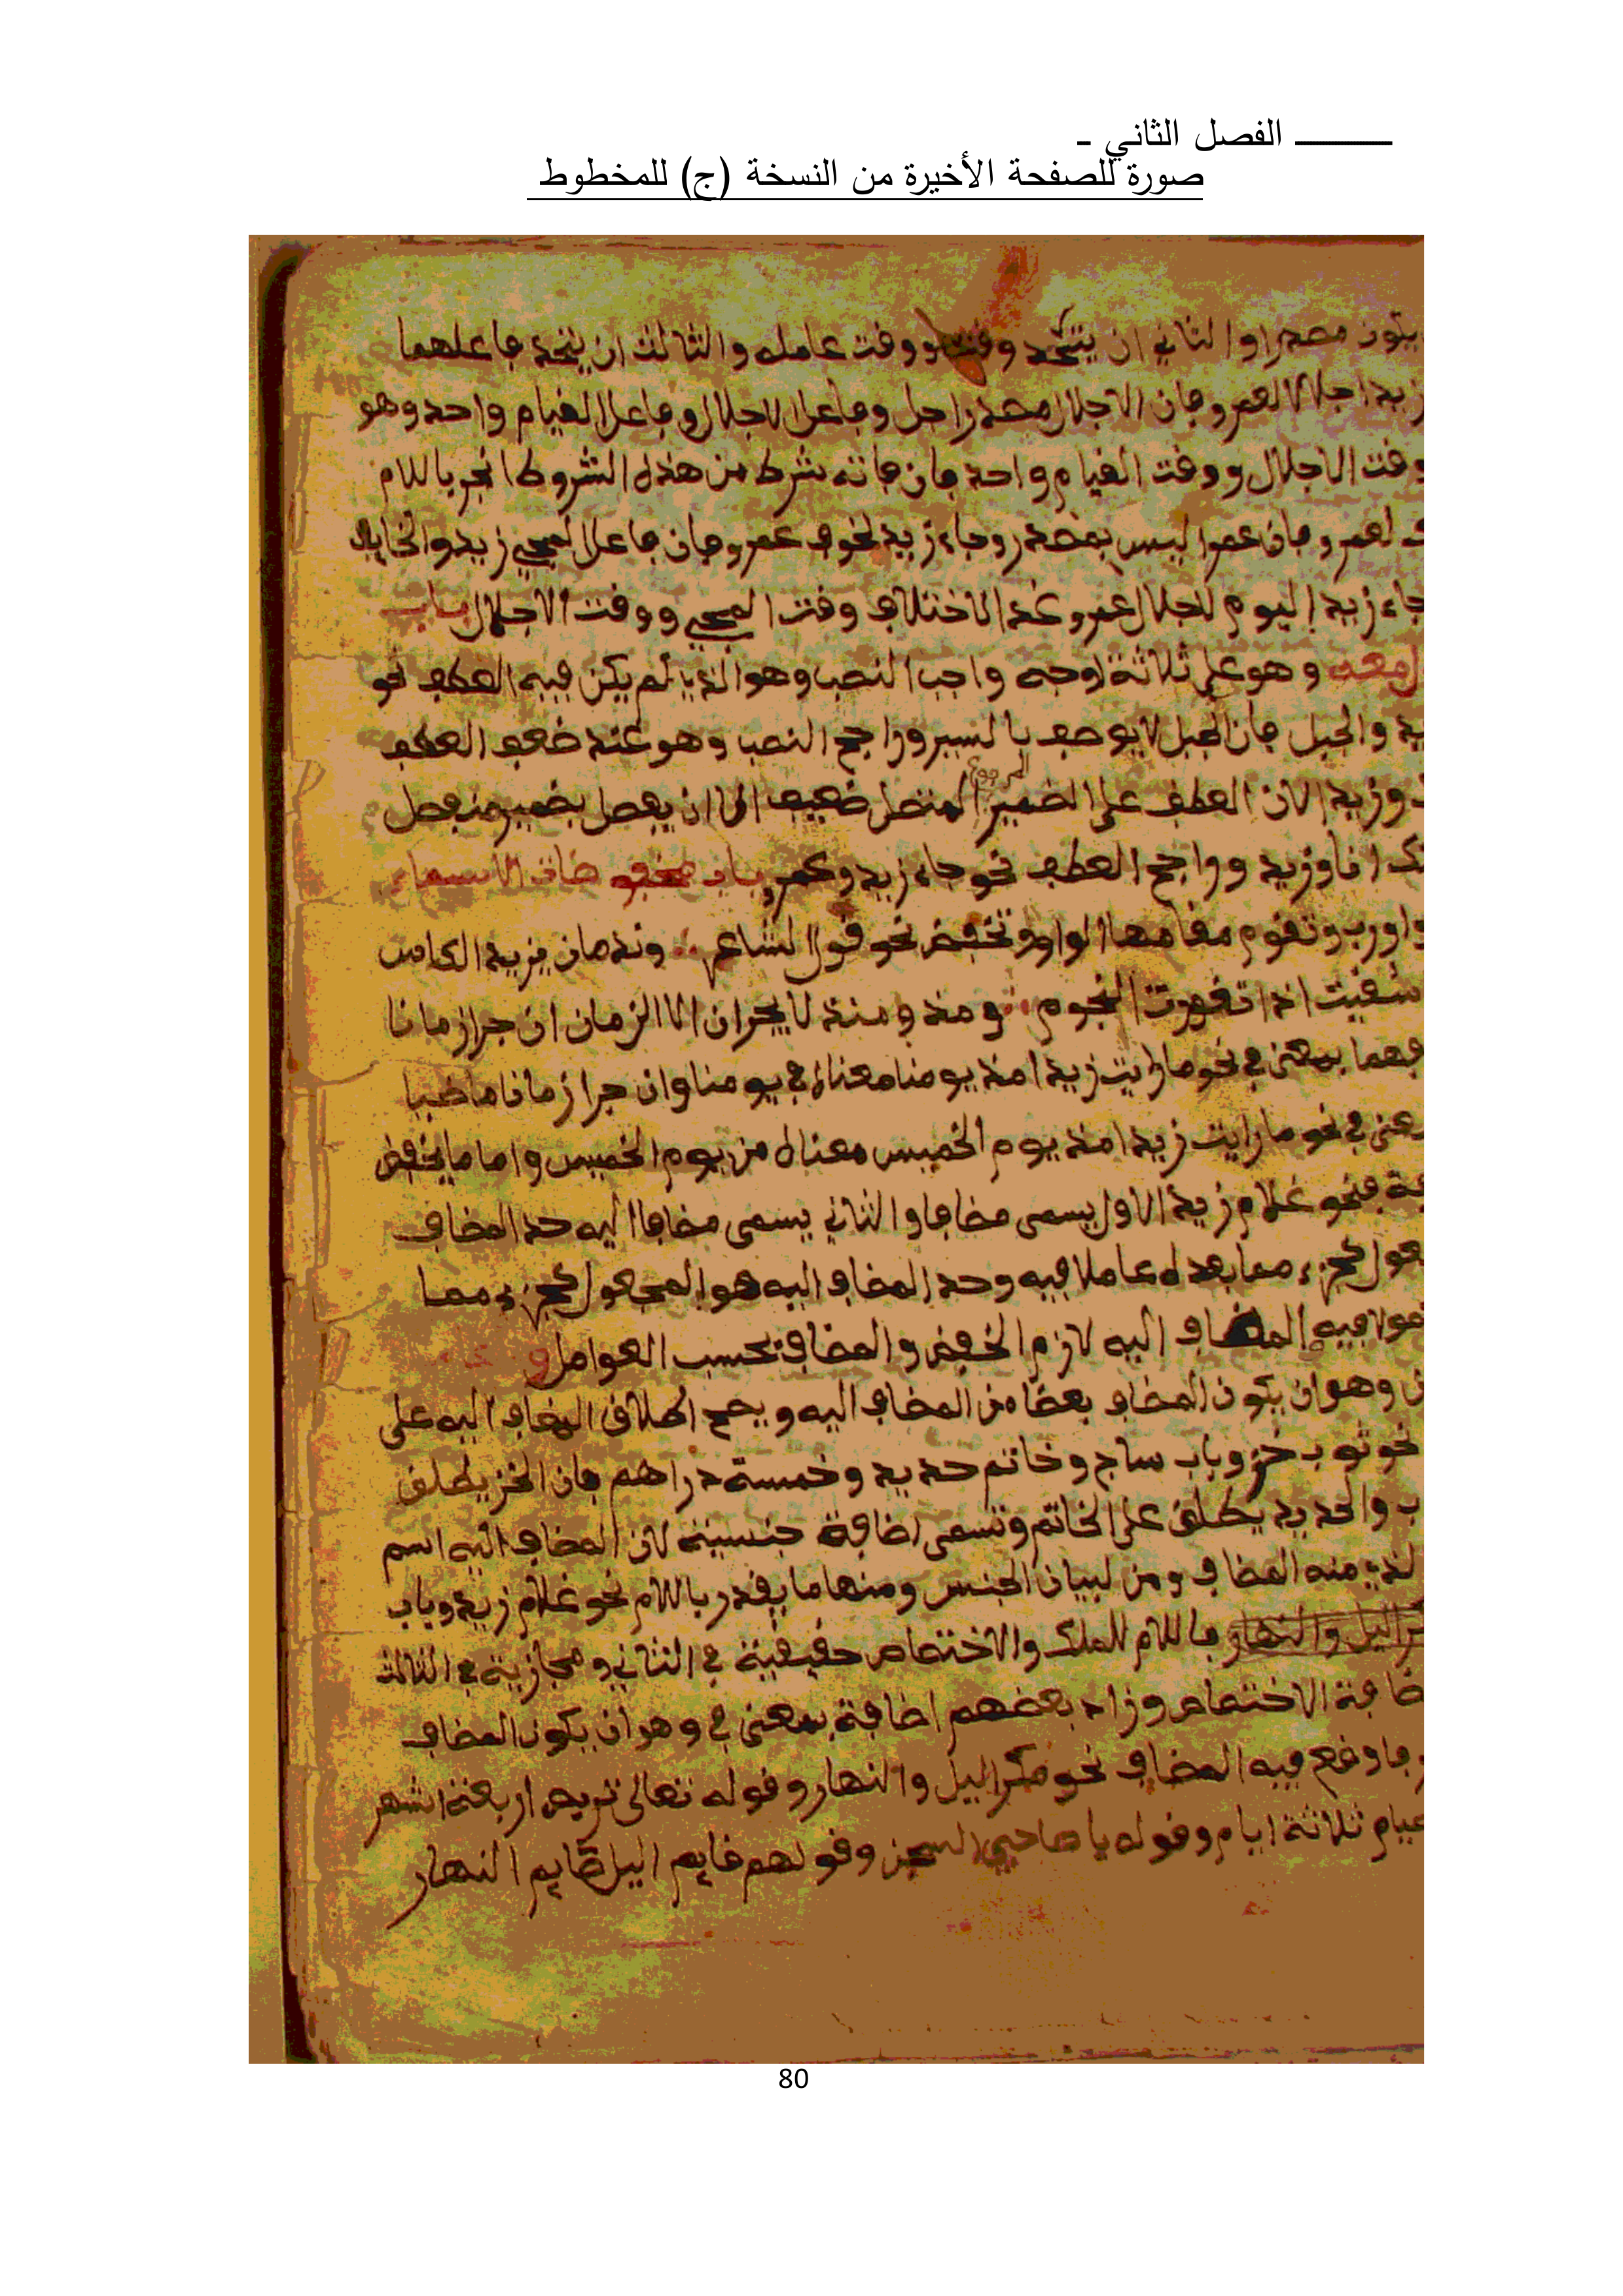 الفصل الثاني -
صورة للصفحة الأخيرة من النسخة (ج) للمخطوط
يكون مصدرا والثاني ان يتحد وقته ووقت عامله والثالث ان يتحد فاعلهما
زيد اجلالا لعمرو فان الاجلال مصدر وفاعل الاجلال وفاعل القيام واحد وهو
وقت الاجلال ووقت القيام واحد فان فاته شرط من هذه الشروط انجر باللام
لعمرو فان عمرا ليس بمصدر وجاء زيد لخوف عمرو فان فاعل المجيي زيد والخايف
جاء زيد اليوم لاجلال عمرو غدا لاختلاف وقت المجيي ووقت الاجلال باب
معه وهو على ثلاثة اوجه واجب النصب وهو الذي لم يكن فيه العطف نحو
والجبل فان الجبل لا يوصف بالسير وراجح النصب وهو عند ضعف العطف
وزيدا لان العطف على الضمير المرفوع المتصل ضعيف الا ان يفصل بضمير منفصل
انا وزيد وراجح العطف نحو جاء زيد وعمرو باب مخفوضات الاسماء
واو رب وتقوم مقامها الواو وتخفض نحو قول الشاعر وندمان يزيد الكاس
سقيت اذا تغورت النجوم ومذ ومنذ لا يجران الا الزمان ان جرا زمانا
فهما بمعنى في نحو ما رايت زيدا مذ يومنا معناه في يومنا وان جرا زمانا ماضيا
في نحو ما رايت زيدا مذ يوم الخميس معناه من يوم الخميس واما ما يخفض
فنحو غلام زيد الاول يسمى مضافا والثاني يسمى مضافا اليه حد المضاف
كجزء مما بعده عاملا فيه وحد المضاف اليه هو المجعول كجزء مما
فيه المضاف اليه لازم الخفض والمضاف بحسب العوامل
وهو ان يكون المضاف بعضا من المضاف اليه ويصح اطلاق المضاف اليه على
نحو ثوب خز وباب ساج وخاتم حديد وخمسة دراهم فان الخز يطلق
والحديد يطلق على الخاتم وتسمى اضافة جنسية لان المضاف اليه اسم
منه المضاف ومن لبيان الجنس ومنها ما يقدر باللام نحو غلام زيد وباب
اليل والنهار فاللام للملك والاختصاص حقيقية في الثاني ومجازية في الثالث
الاختصاص وزاد بعضهم اضافة بمعنى في وهو ان يكون المضاف
وقع فيه المضاف نحو مكر اليل والنهار وقوله تعالى تربص اربعة اشهر
صيام ثلاثة ايام وقوله يا صاحبي السجن وقولهم قايم اليل صايم النهار
80